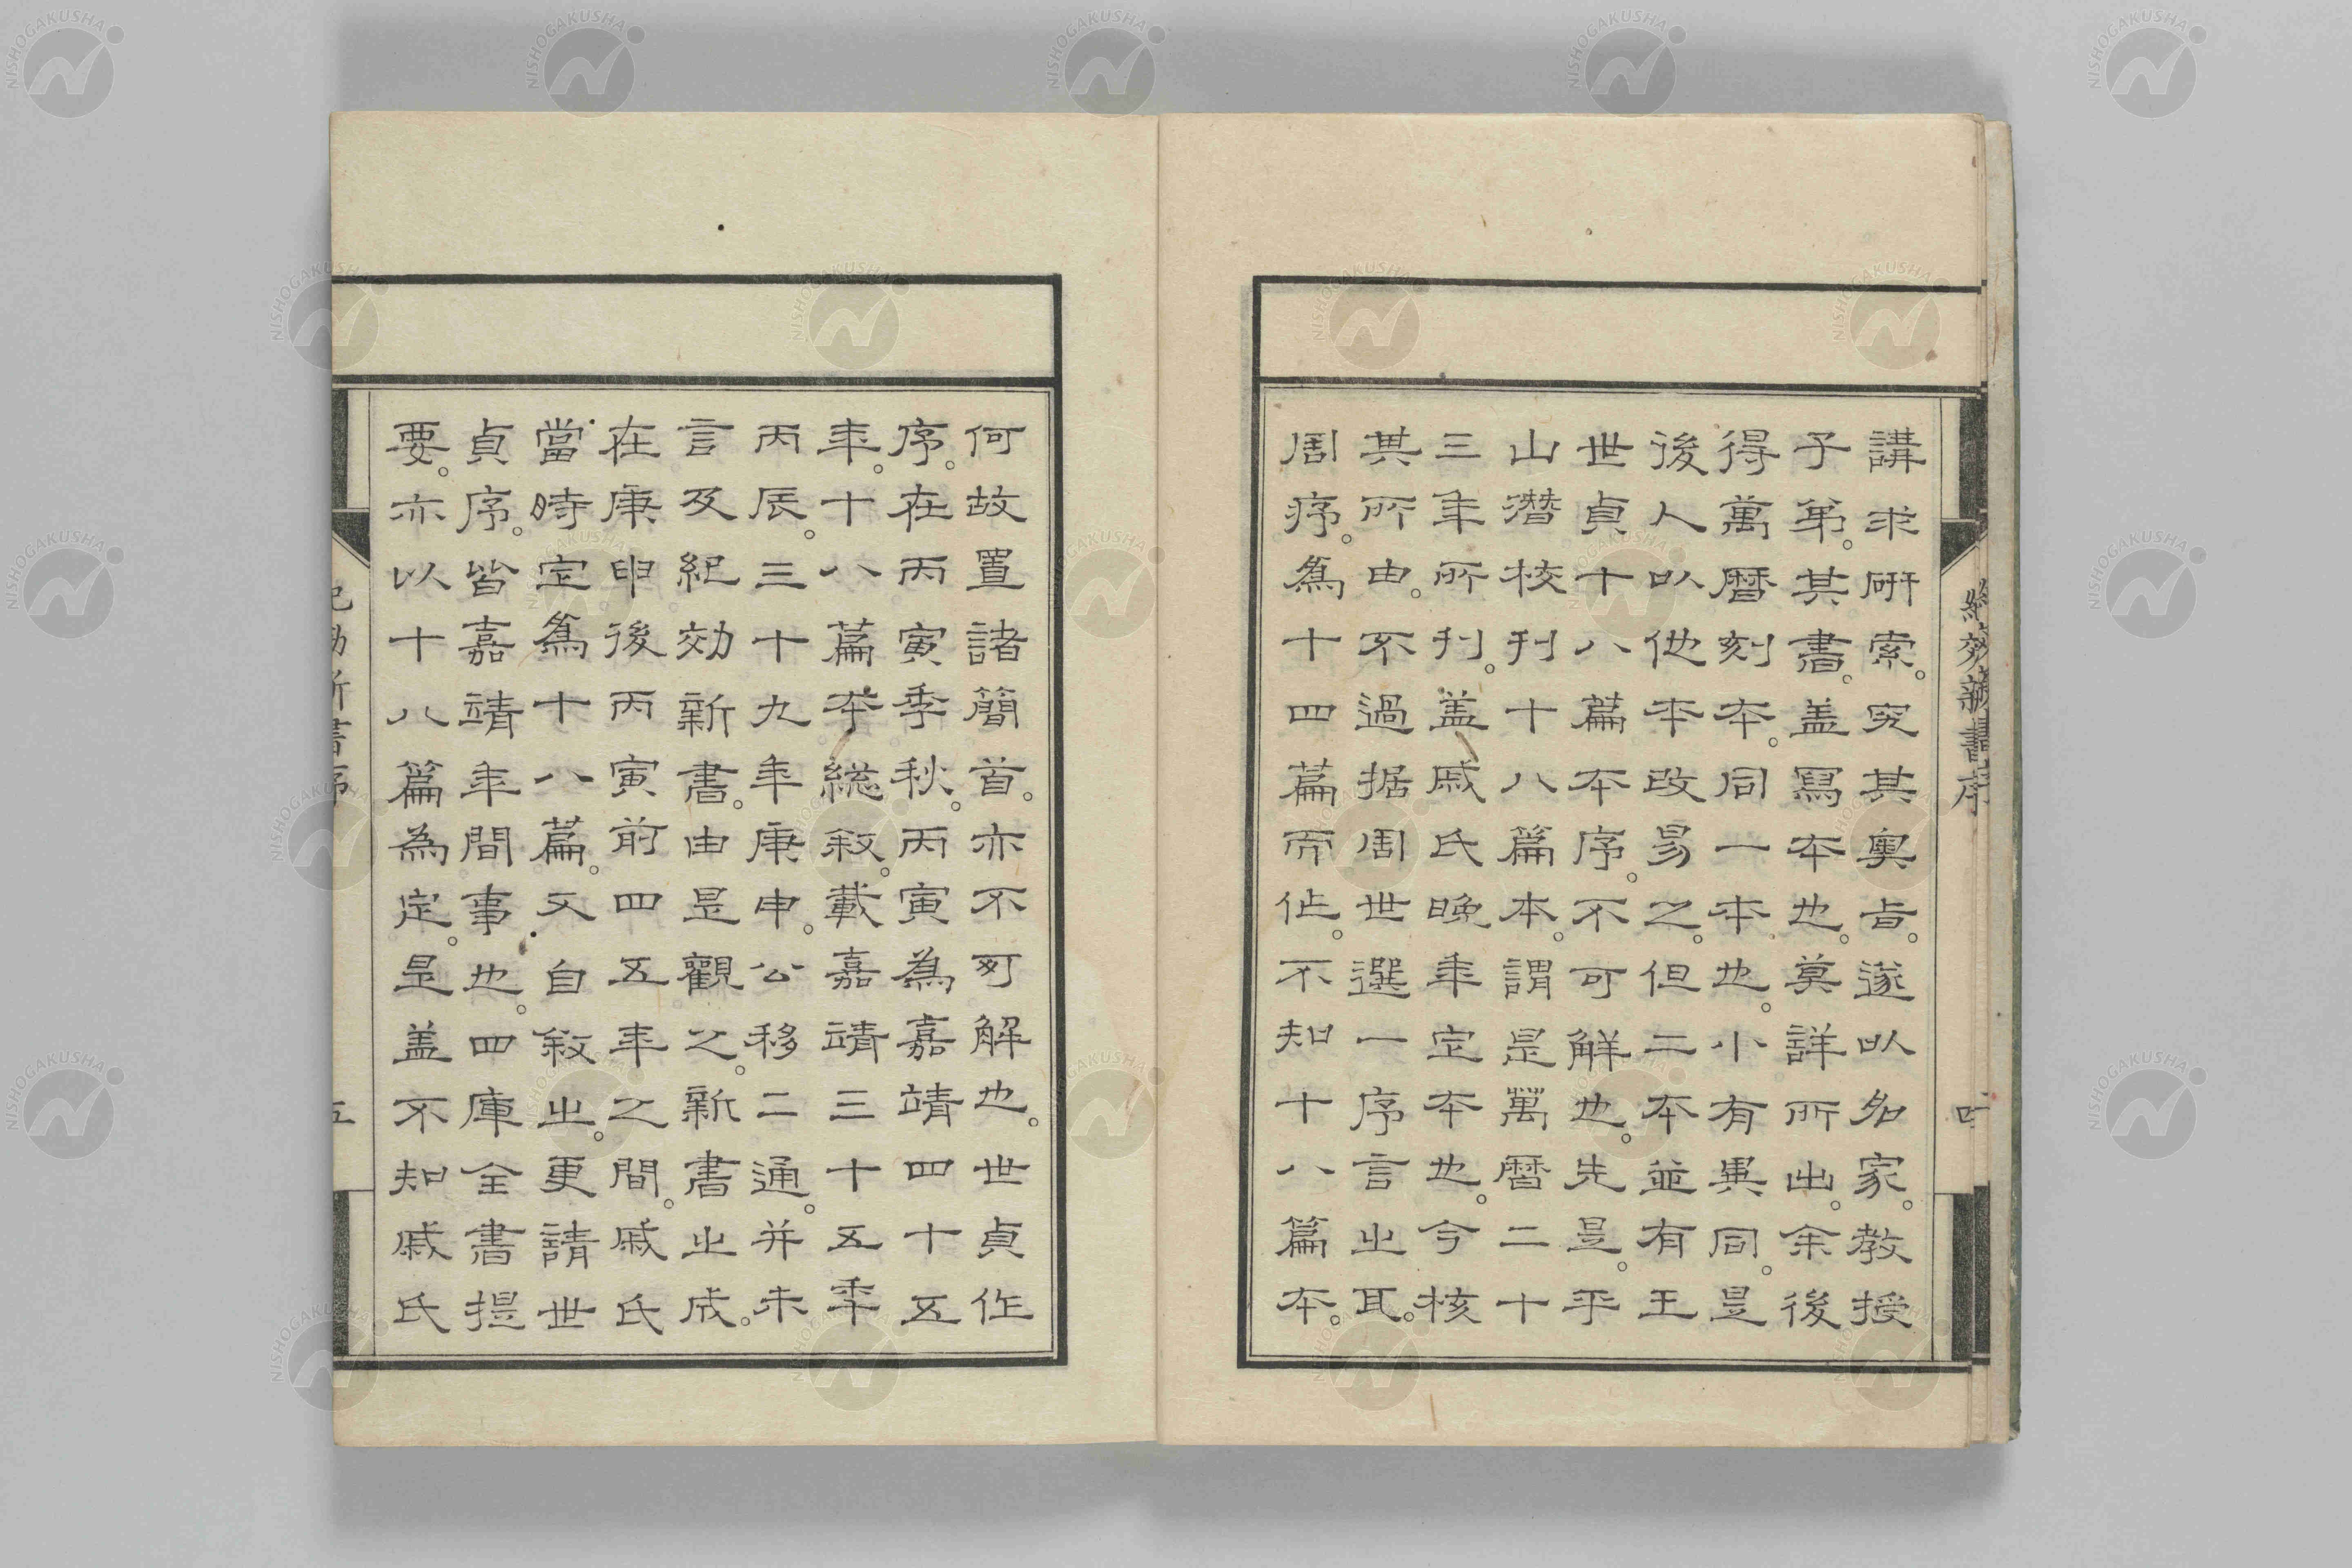 講求研索。究其奧旨。遂以名家。教授
子弟。其書。盖寫本也。莫詳所出。余後
得萬曆刻本。同一本也。小有異同。是
後人以他本改易之。但二本並有王
世貞十八篇本序。不可解也。先是。平
山潛校刊十八篇本。謂是萬曆二十
三年所刊。盖戚氏晚年定本也。今核
其所由。不過据周世選一序言之耳。
周序。為十四篇而作。不知十八篇本。
紀效新書序
四
何故置諸簡首。亦不可解也。世貞作
序。在丙寅季秋。丙寅為嘉靖四十五
年。十八篇本総敘。載嘉靖三十五年
丙辰。三十九年庚申。公移二通。并未
言及紀効新書。由是觀之。新書之成。
在庚申後丙寅前四五年之間。戚氏
當時定為十八篇。又自敘之。更請世
貞序。皆嘉靖年間事也。四庫全書提
要。亦以十八篇為定。是盖不知戚氏
五
NISHOGAKUSHA